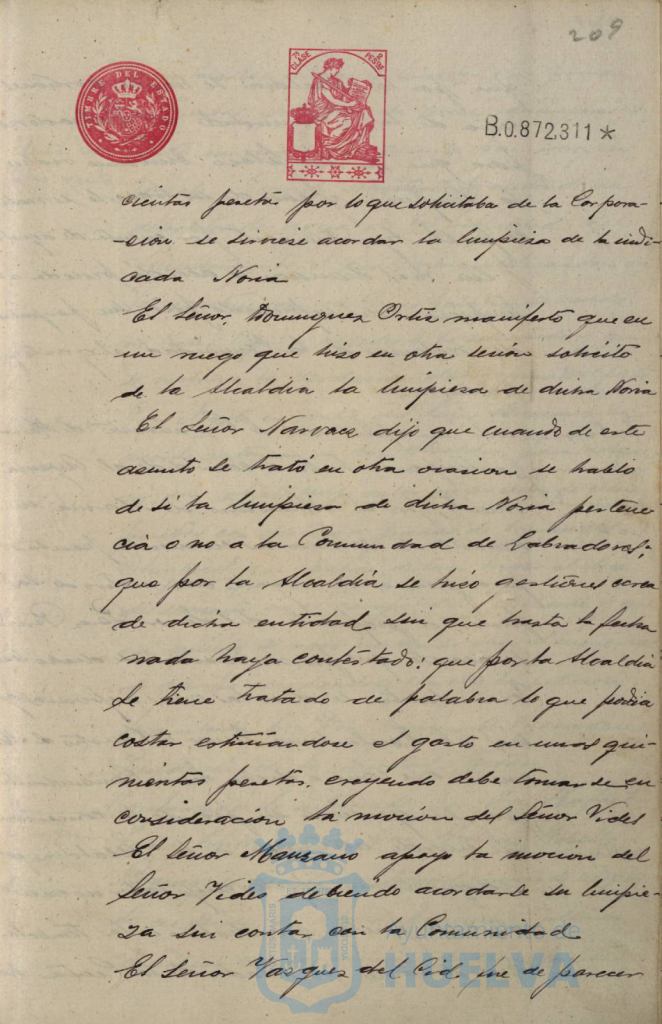 209
TIMBRE DEL ESTADO
7ª CLASE
2 PESETAS
B.0.872,311 *
cientas pesetas por lo que solicitaba de la Corpora-
-cion se sirviese acordar la limpieza de la indi
cada Noria
El Señor Dominguez Ortiz manifestó que en
un ruego que hizo en otra sesión solicitó
de la Alcaldia la limpieza de dicha Noria
El Señor Narvaez dijo que cuando de este
asunto se trató en otra ocasion se habló
de si la limpieza de dicha Noria pertene
cia o no a la Comunidad de Labradores;
que por la Alcaldía se hizo gestiones cerca
de dicha entidad sin que hasta la fecha
nada haya contestado: que por la Alcaldía
se tiene tratado de palabra lo que podia
costar estimandose el gasto en unas qui
nientas pesetas, creyendo debe tomarse en
consideracion la mocion del Señor Vides
El Señor Manzano apoyó la mocion del
Señor Vides debiendo acordarse su limpie-
za sin contar con la Comunidad
El Señor Vazquez del Cid, fue de parecer
HUELVA